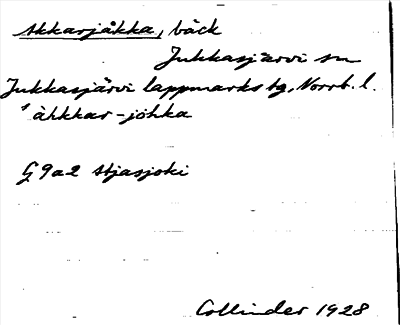 Akkarjåkka, bäck
Jukkasjärvi sn
Jukkasjärvi lappmarks tg, Norrb. l.
åhkkar-johka
G 9a2 Stjasjoki
Collinder 1928